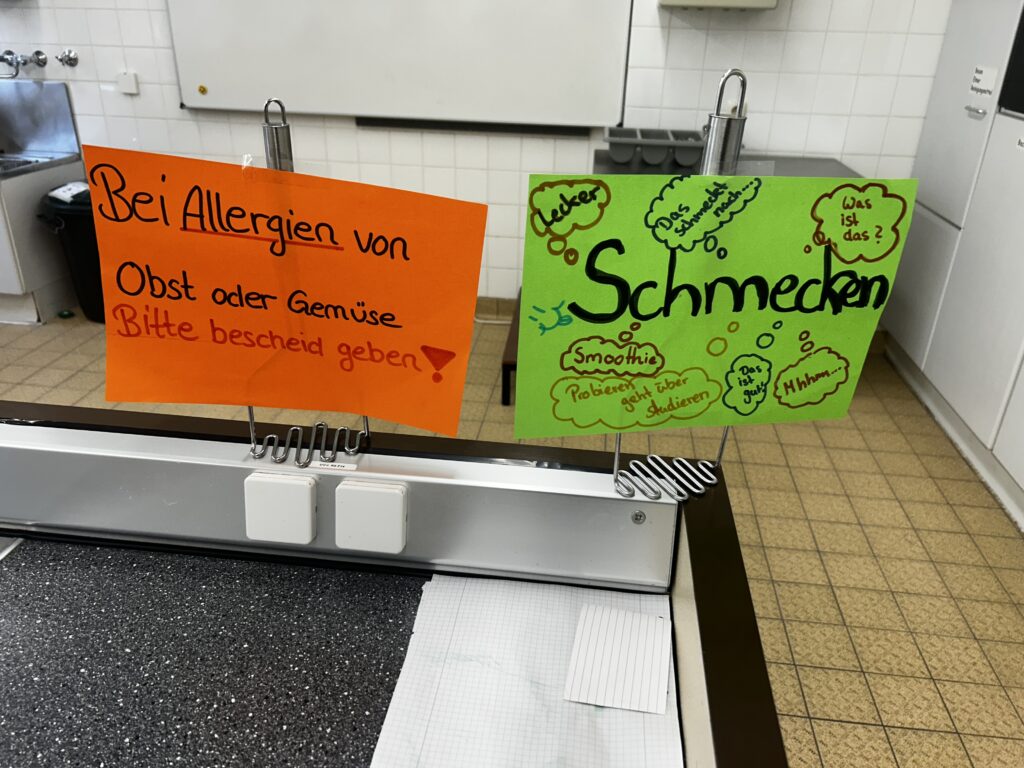 Bei Allergien von
Obst oder Gemüse
Bitte bescheid geben!
Lecker
Das
schmeckt
nach...
Was
ist
das?
Schmecken
Smoothie
Probieren
geht über
studieren
Das
ist
gut!
Mhhm...